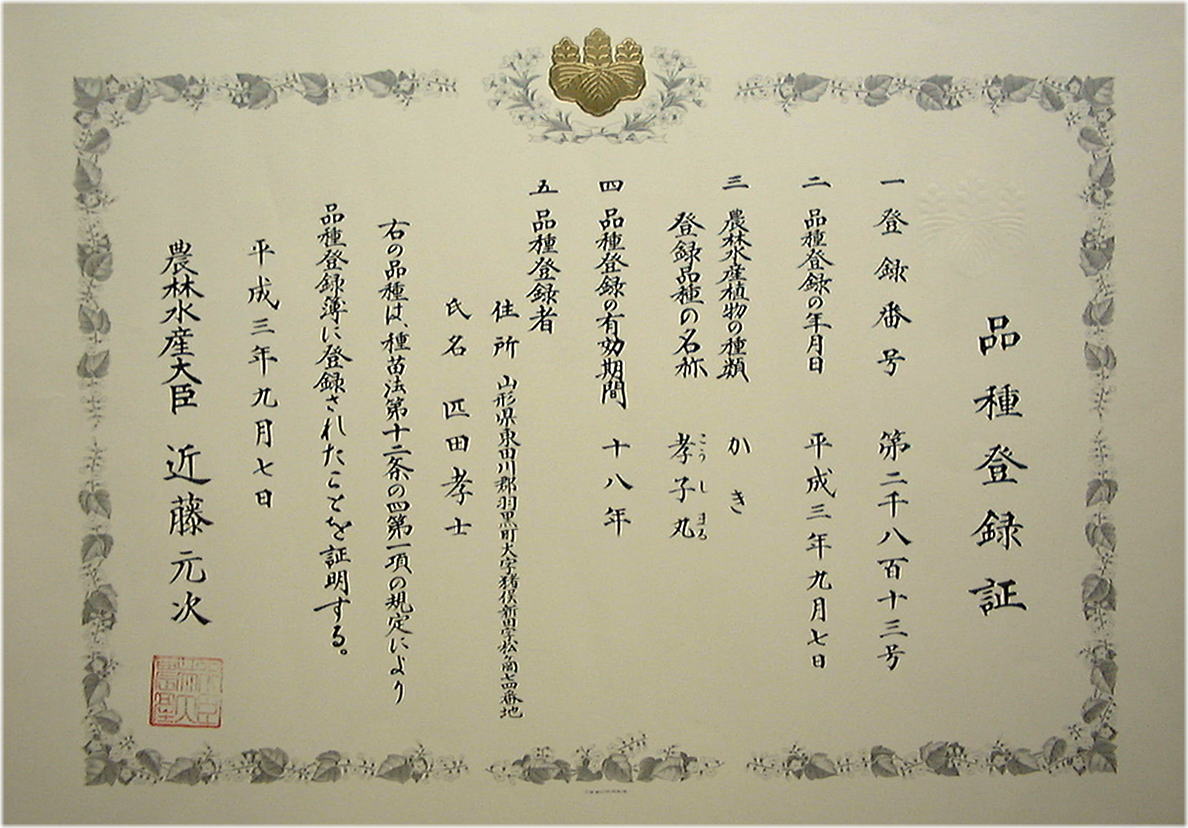 品種登録証
一 登録番号 第二千八百十三号
二 品種登録の年月日 平成三年九月七日
三 農林水産植物の種類 かき
登録品種の名称 孝子丸
こうしまる
四 品種登録の有効期間 十八年
五 品種登録者
住所 山形県東田川郡羽黒町大字猪俣新田字松ヶ崗七四番地
氏名 匹田孝士
右の品種は、種苗法第十二条の四第一項の規定により
品種登録簿に登録されたことを証明する。
平成三年九月七日
農林水産大臣 近藤元次